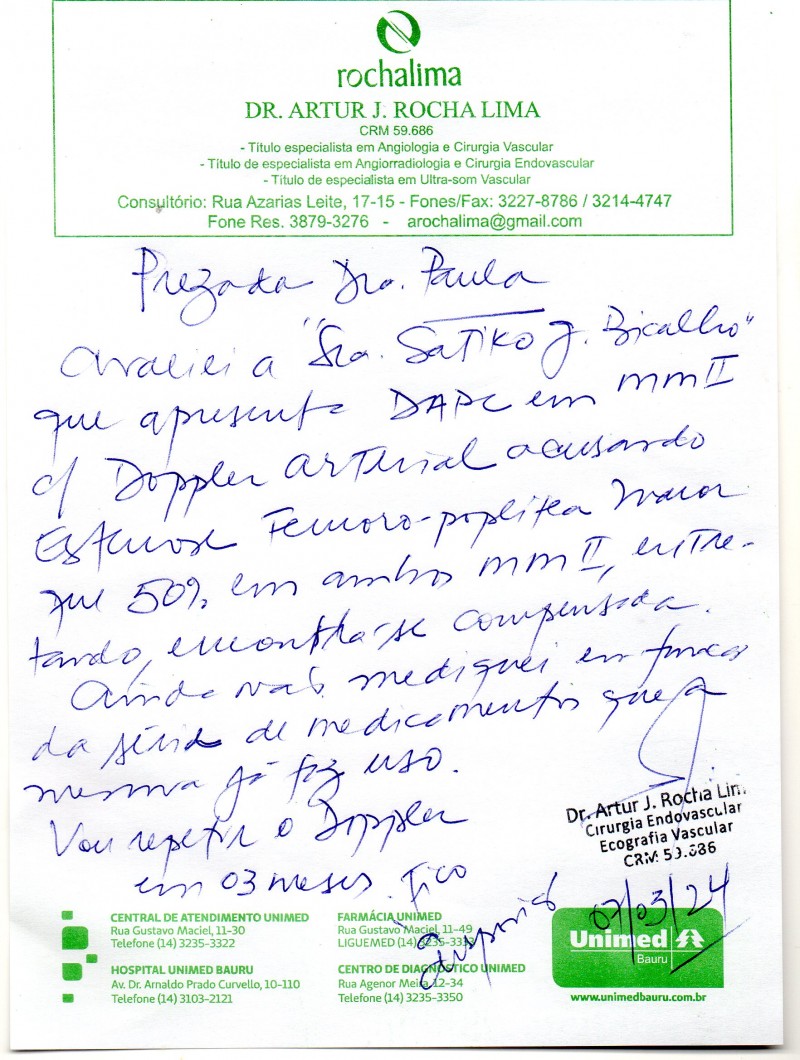 rochalima
DR. ARTUR J. ROCHA LIMA
CRM 59.686
- Título especialista em Angiologia e Cirurgia Vascular
- Título de especialista em Angiorradiologia e Cirurgia Endovascular
- Título de especialista em Ultra-som Vascular
Consultório: Rua Azarias Leite, 17-15 - Fones/Fax: 3227-8786 / 3214-4747
Fone Res. 3879-3276 - arochalima@gmail.com
Prezada Dra. Paula
Avaliei a "Sra. Satiko J. Bicalho"
que apresenta DAPC em mmII
c/ Doppler arterial acusando
Estenose Femoro-poplitea maior
que 50% em ambos mmII, entre-
tando, encontra-se compensada.
Ainda não mediquei em função
da série de medicamentos que a
mesma já faz uso.
Vou repetir o Doppler
em 03 meses. Fico
a disposição
07/03/24
Dr. Artur J. Rocha Lim
Cirurgia Endovascular
Ecografia Vascular
CRM: 59.686
CENTRAL DE ATENDIMENTO UNIMED
Rua Gustavo Maciel, 11-30
Telefone (14) 3235-3322
HOSPITAL UNIMED BAURU
Av. Dr. Arnaldo Prado Curvello, 10-110
Telefone (14) 3103-2121
FARMÁCIA UNIMED
Rua Gustavo Maciel, 11-49
LIGUEMED (14) 3235-3333
CENTRO DE DIAGNÓSTICO UNIMED
Rua Agenor Meira, 12-34
Telefone (14) 3235-3350
Unimed
Bauru
www.unimedbauru.com.br